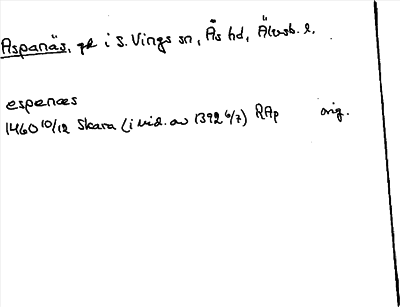 Aspanäs, gd i S. Vings sn, Ås hd, Älvsb. l.
espenæs
1460 10/12 Skara (i vid. av 1392 6/7) RAp orig.